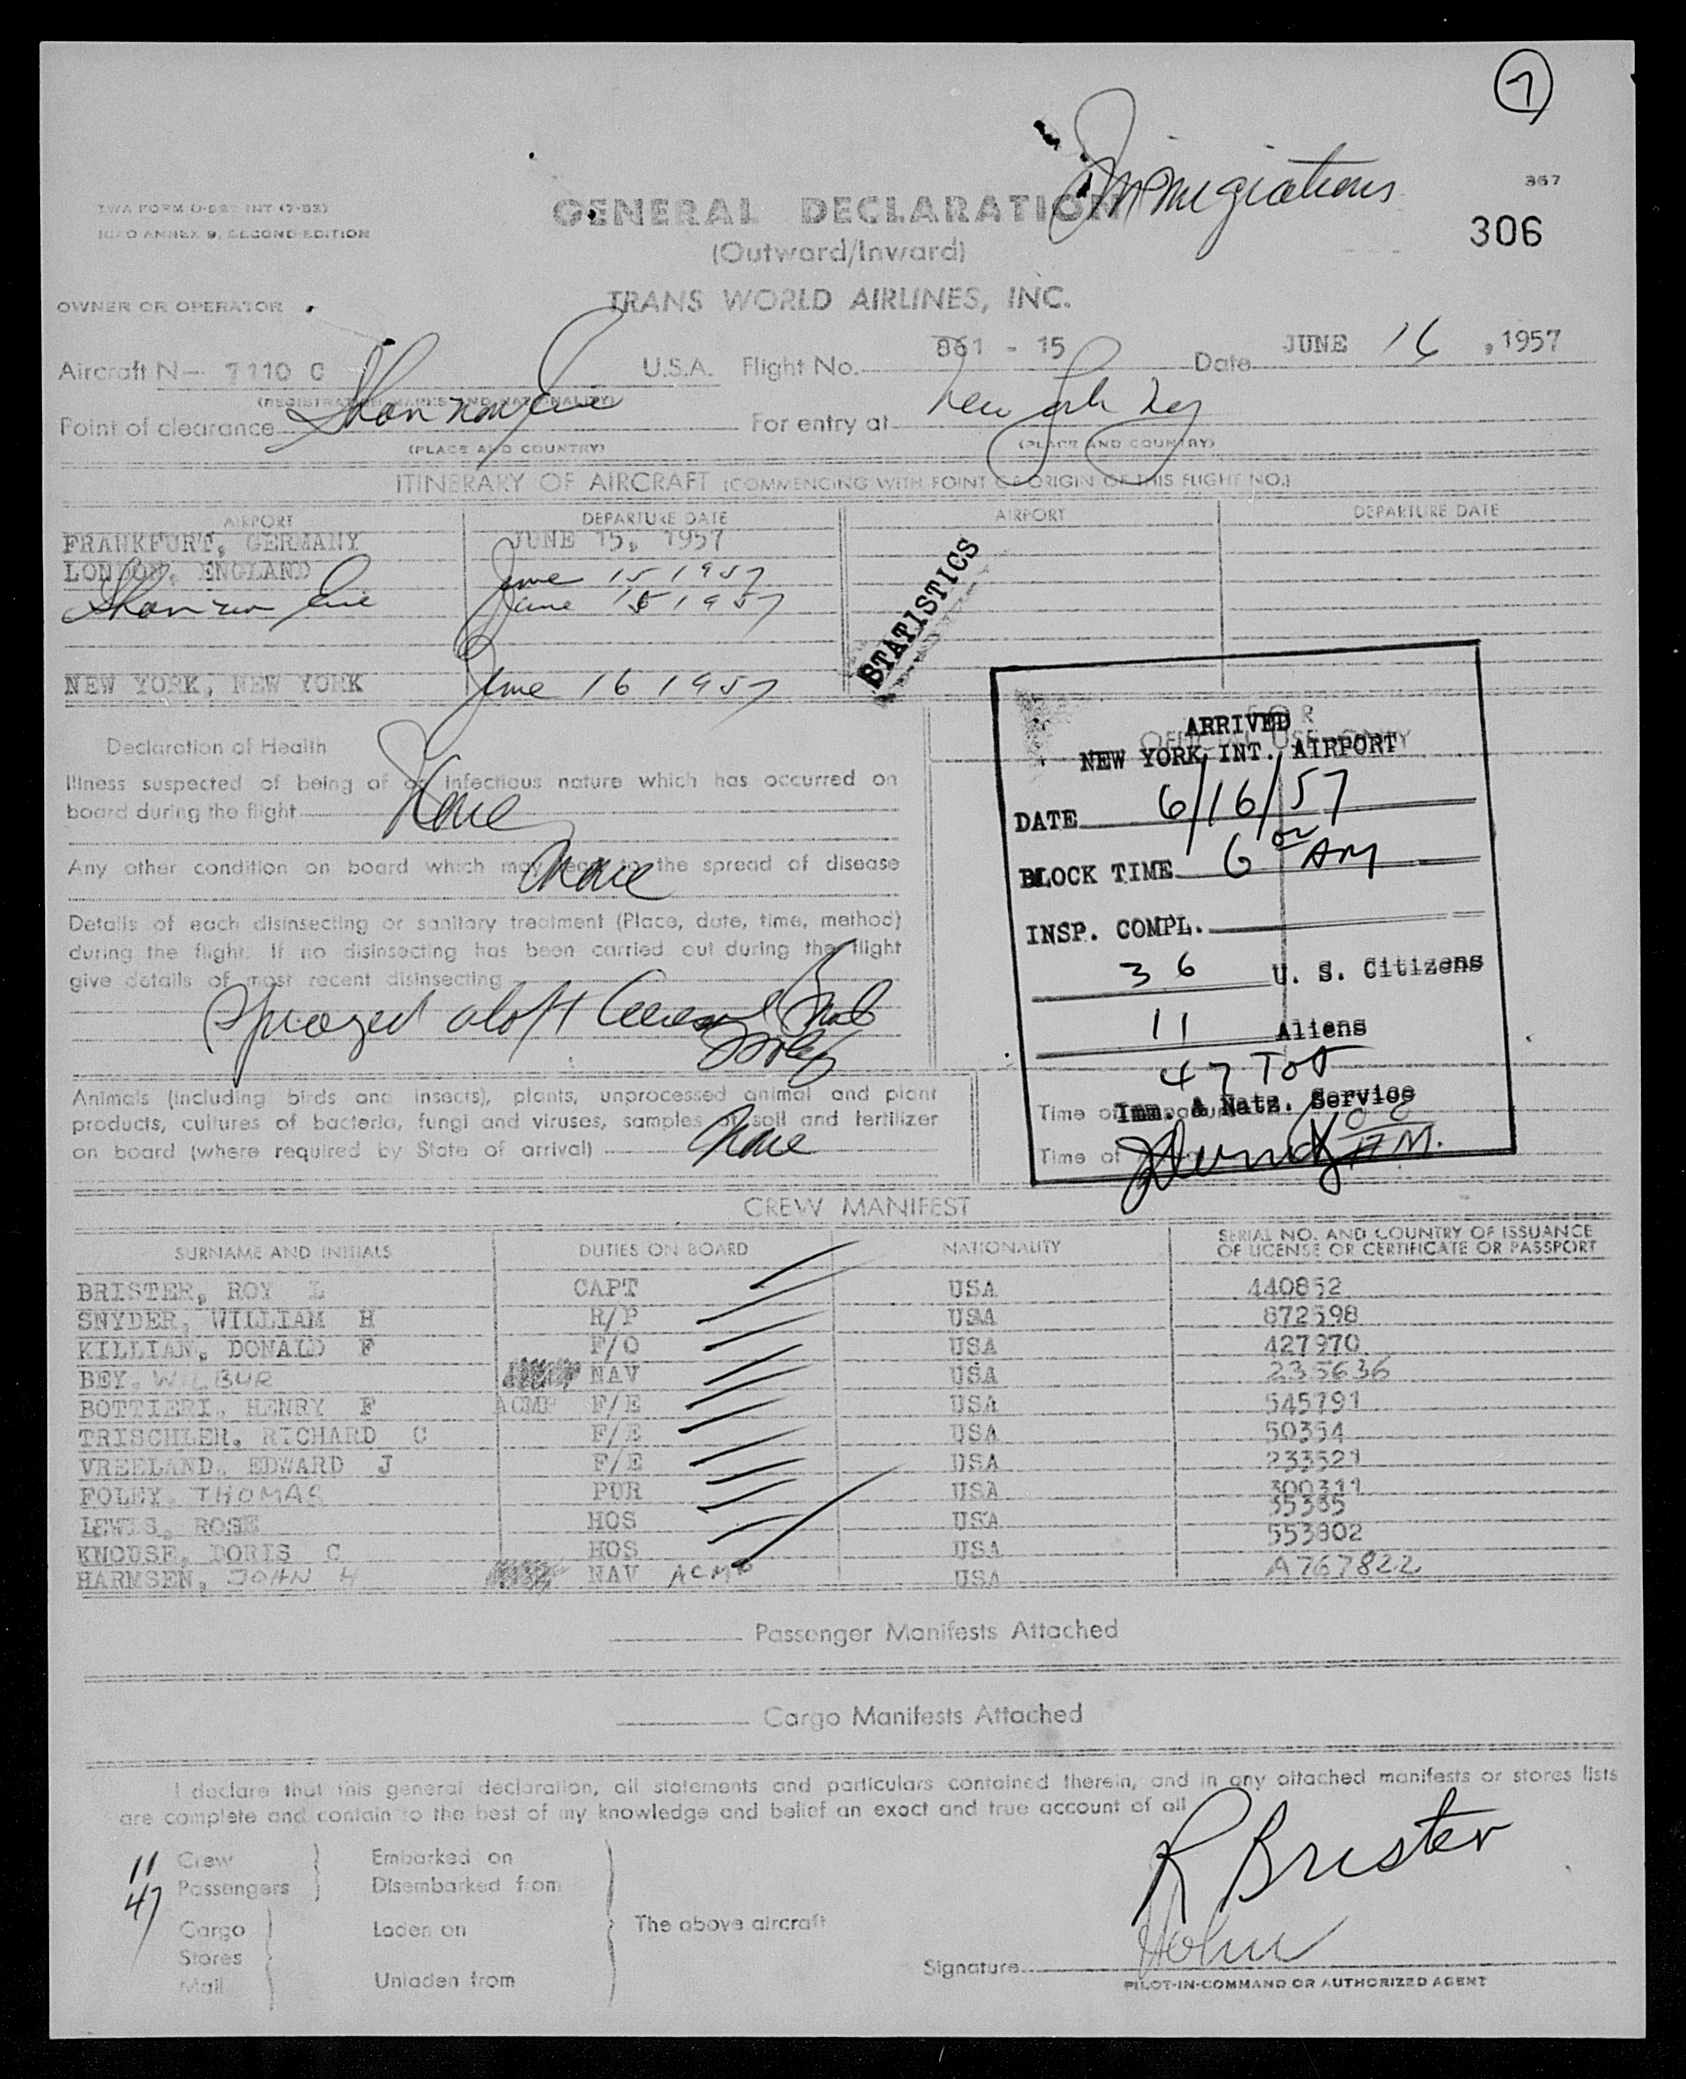 7
Immigrations
367
TWA FORM INT (7-52)
ICAO ANNEX 9, SECOND EDITION
GENERAL DECLARATION
306
(Outward/Inward)
OWNER OR OPERATOR
TRANS WORLD AIRLINES, INC.
Aircraft N- 7110 C U.S.A. Flight No. 861 - 15 Date JUNE 16, 1957
(REGISTRATION MARKS AND NATIONALITY)
Point of clearance Shannon Eire For entry at New York NY
(PLACE AND COUNTRY) (PLACE AND COUNTRY)
ITINERARY OF AIRCRAFT (COMMENCING WITH POINT OF ORIGIN OF THIS FLIGHT NO.)
AIRPORT DEPARTURE DATE AIRPORT DEPARTURE DATE
FRANKFURT, GERMANY JUNE 15, 1957
LONDON, ENGLAND June 15 1957
Shannon Eire June 15 1957
STATISTICS
NEW YORK, NEW YORK June 16 1957
Declaration of Health
Illness suspected of being of an infectious nature which has occurred on
board during the flight None
Any other condition on board which may lead to the spread of disease
None
Details of each disinsecting or sanitary treatment (Place, date, time, method)
during the flight. If no disinsecting has been carried out during the flight
give details of most recent disinsecting
Sprayed aloft Aerosol Bomb
Foley
Animals (including birds and insects), plants, unprocessed animal and plant
products, cultures of bacteria, fungi and viruses, samples of soil and fertilizer
on board (where required by State of arrival) None
FOR
OFFICIAL USE ONLY
ARRIVED
NEW YORK INT. AIRPORT
DATE 6/16/57
BLOCK TIME 6 00 AM
INSP. COMPL.
36 U. S. Citizens
11 Aliens
47 Tot
Imm. & Natz. Service
Time of
Time of AM.
CREW MANIFEST
SURNAME AND INITIALS DUTIES ON BOARD NATIONALITY SERIAL NO. AND COUNTRY OF ISSUANCE
OF LICENSE OR CERTIFICATE OR PASSPORT
BRISTER, ROY L CAPT USA 440852
SNYDER, WILLIAM H R/P USA 872598
KILLIAN, DONALD F F/O USA 427970
BEY, WILBUR NAV USA 235636
BOTTIERI, HENRY F ACMR F/E USA 545791
TRISCHLER, RICHARD C F/E USA 50354
VREELAND, EDWARD J F/E USA 233521
FOLEY, THOMAS PUR USA 300311
LEWIS, ROSE HOS USA 35385
KNOUSE, DORIS C HOS USA 553802
HARMSEN, JOHN H NAV ACMR USA A767822
Passenger Manifests Attached
Cargo Manifests Attached
I declare that this general declaration, all statements and particulars contained therein, and in any attached manifests or stores lists
are complete and contain to the best of my knowledge and belief an exact and true account of all
11 Crew Embarked on
47 Passengers Disembarked from
Cargo Laden on The above aircraft
Stores
Mail Unladen from
R Brister
Signature
PILOT-IN-COMMAND OR AUTHORIZED AGENT